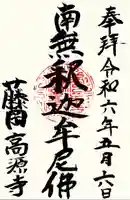 奉拝 令和六年五月六日
南無釈迦牟尼佛
藤田 高源寺